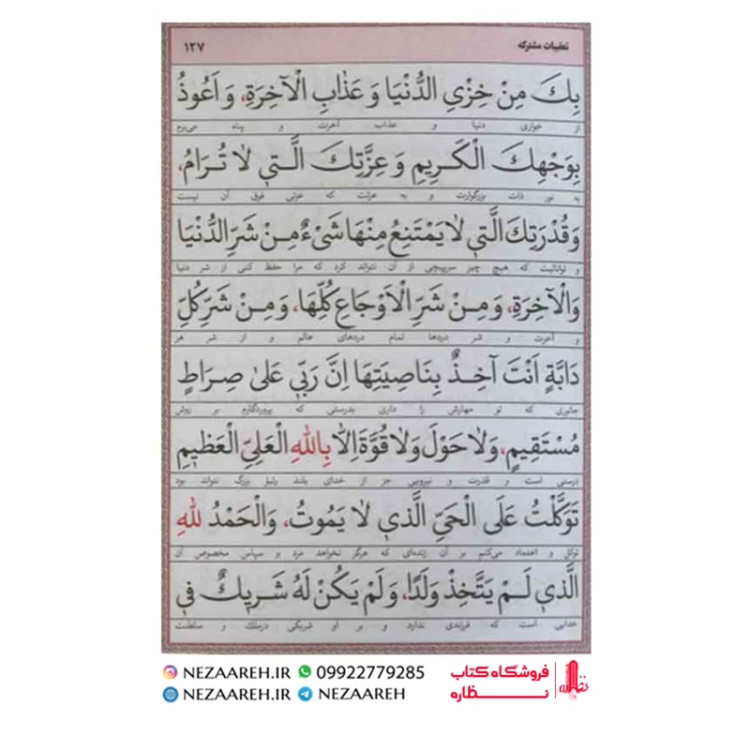 تعقیبات مشترکه ۱۲۷
بِكَ مِنْ خِزْیِ الدُّنْیَا وَ عَذَابِ الْآخِرَةِ، وَ اَعُوذُ
از خواری دنیا و عذاب آخرت و پناه می‌برم
بِوَجْهِكَ الْكَریمِ وَ عِزَّتِكَ الَّتی لا تُرَامُ،
به نور ذات بزرگوارت و به عزتت که عزتی فوق آن نیست
وَ قُدْرَتِكَ الَّتی لا یَمْتَنِعُ مِنْهَا شَیْءٌ مِنْ شَرِّ الدُّنْیَا
و توانائیت که هیچ چیز سرپیچی از آن نتواند کرد که مرا حفظ کنی از شر دنیا
وَ الْآخِرَةِ، وَ مِنْ شَرِّ الْاَوْجَاعِ كُلِّهَا، وَ مِنْ شَرِّ كُلِّ
و آخرت و شر دردها تمام دردهای عالم و از شر هر
دَابَّةٍ اَنْتَ آخِذٌ بِنَاصِیَتِهَا اِنَّ رَبّی عَلیٰ صِرَاطٍ
جانوری که تو مهارش را داری بدرستی که پروردگارم بر روش
مُسْتَقِیمٍ، وَلا حَوْلَ وَلا قُوَّةَ اِلّا بِاللّٰهِ الْعَلِیِّ الْعَظیمِ
درستی است و قدرت و نیرویی جز از خدای بلند رتبهٔ بزرگ نتواند بود
تَوَكَّلْتُ عَلَی الْحَیِّ الَّذی لا یَمُوتُ، وَالْحَمْدُ لِلّٰهِ
توکل و اعتماد می‌کنم بر آن زنده‌ای که هرگز نخواهد مرد و سپاس مخصوص آن
الَّذی لَمْ یَتَّخِذْ وَلَدًا، وَلَمْ یَكُنْ لَهُ شَریكٌ فی
خدایی است که فرزندی ندارد و بر او شریکی درملک و سلطنت
NEZAAREH.IR 09922779285 فروشگاه کتاب
NEZAAREH.IR NEZAAREH نظاره